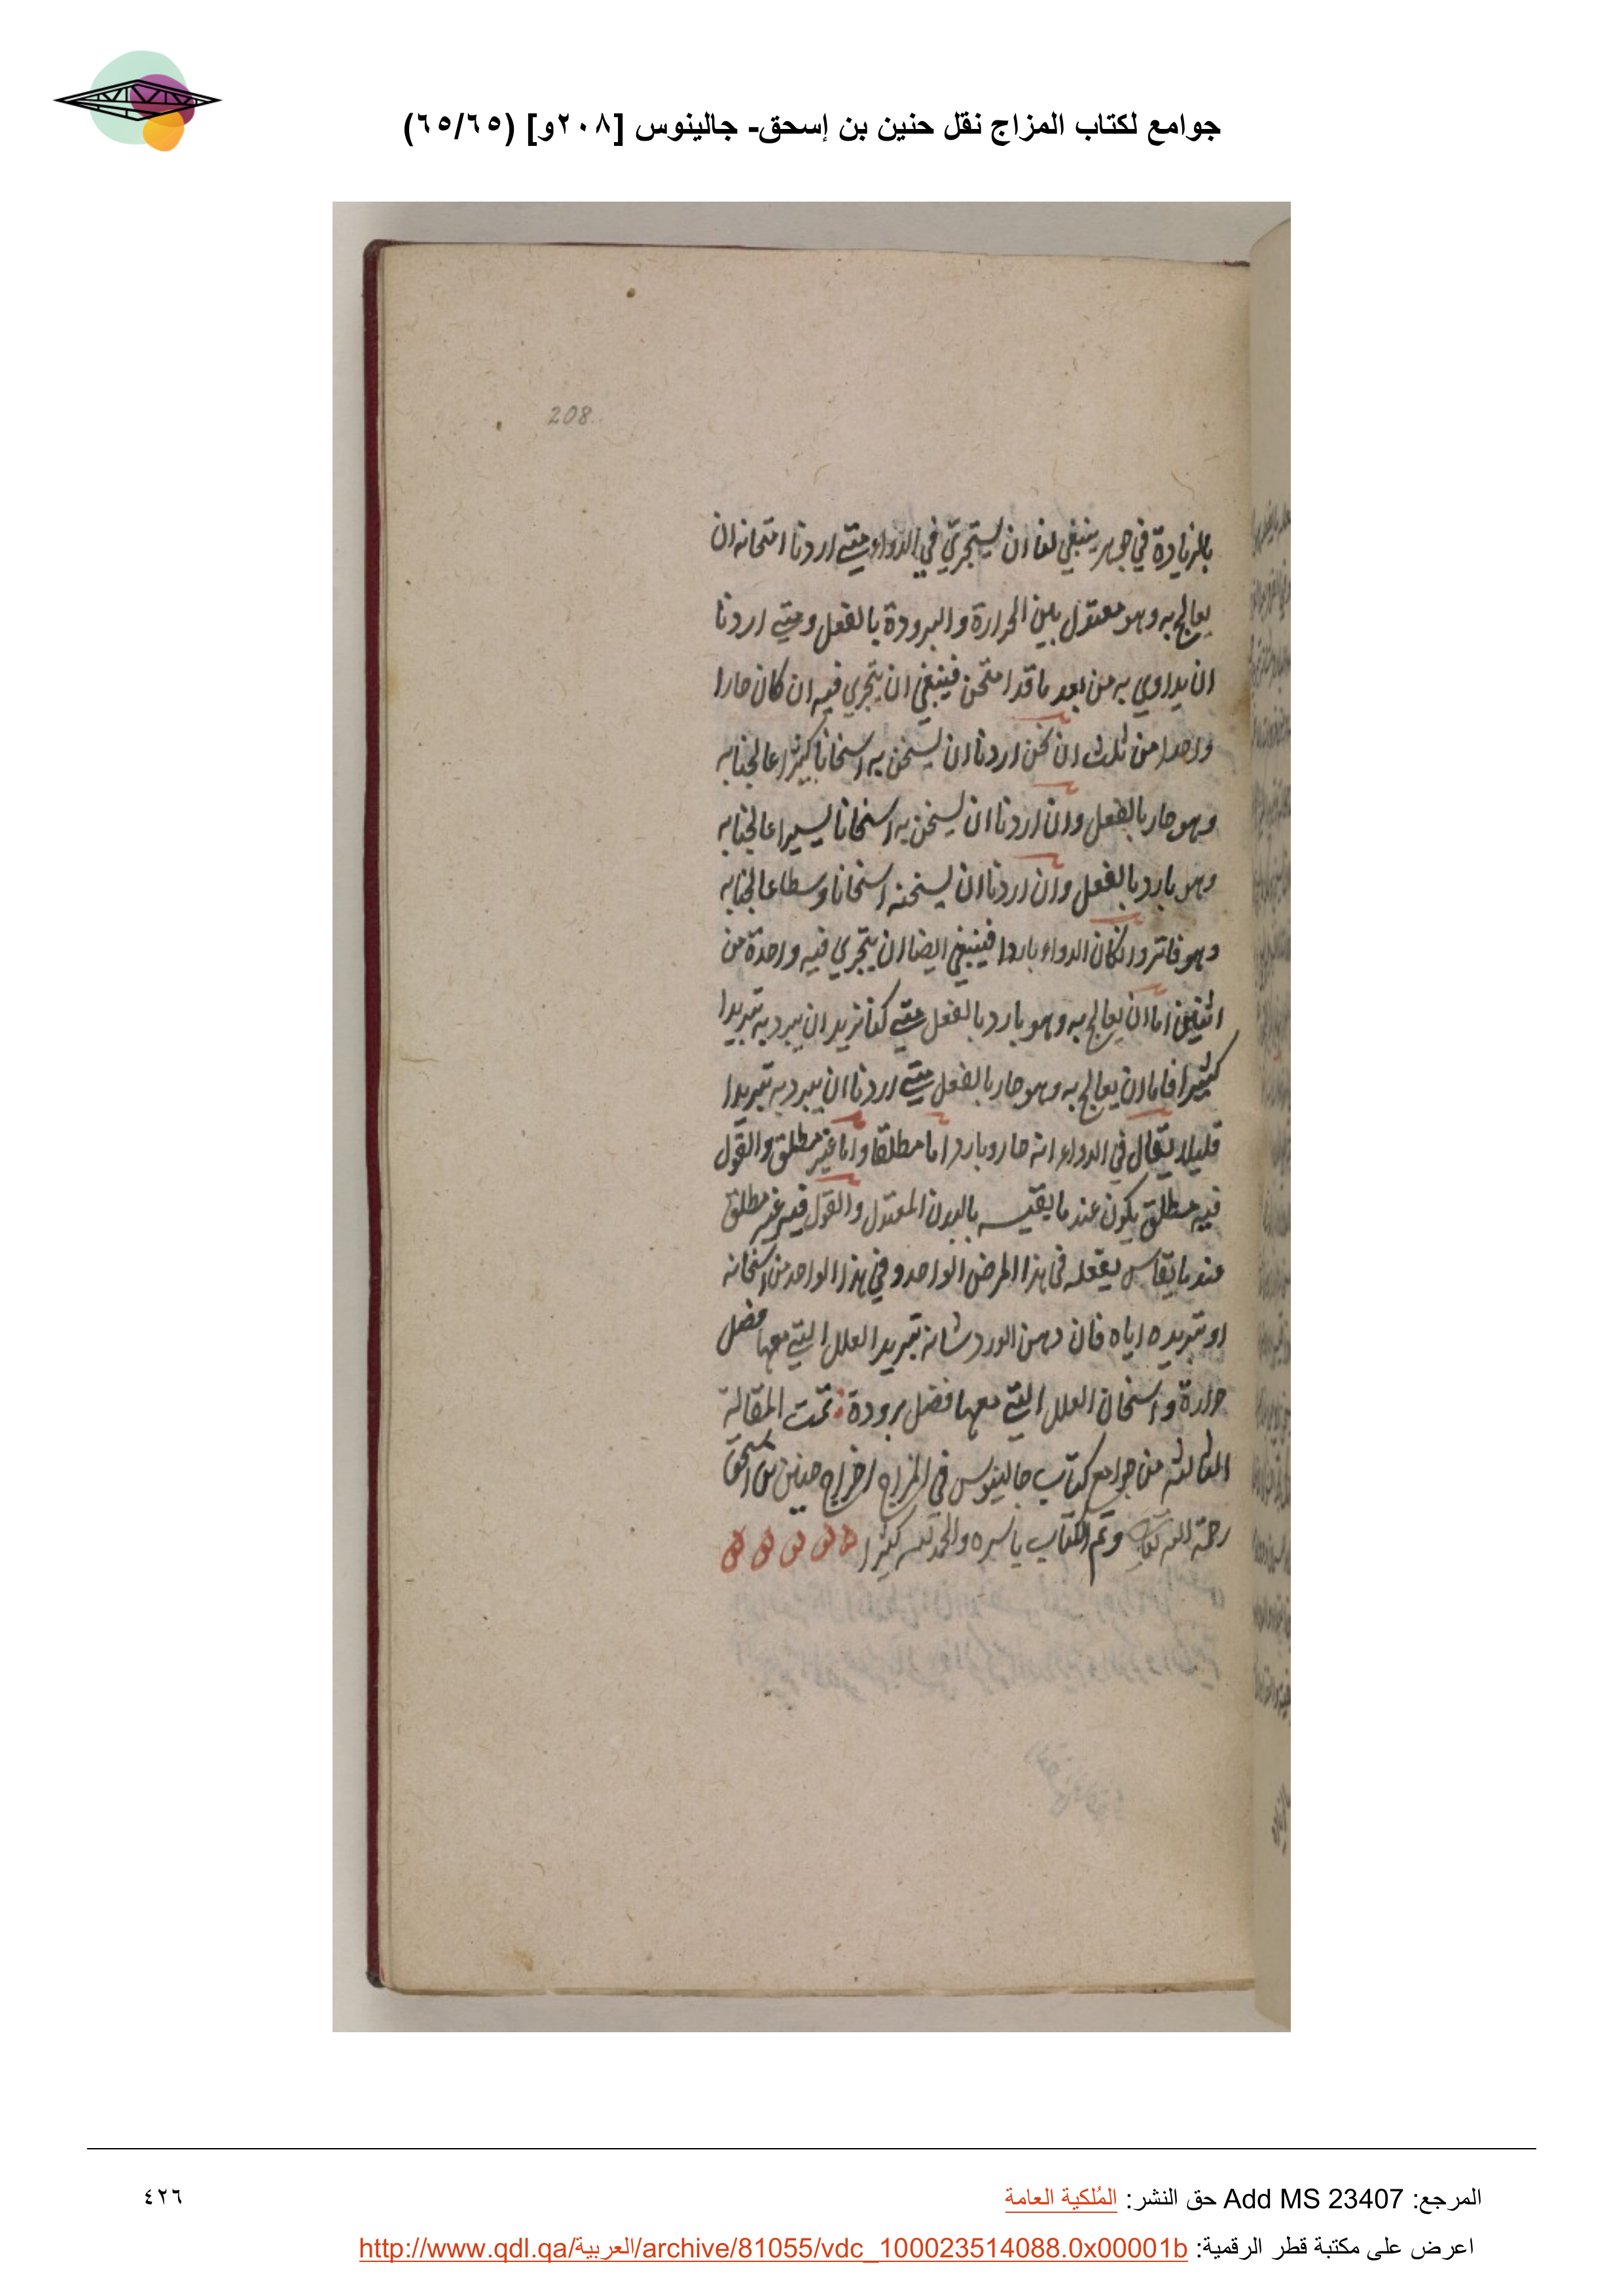 جوامع لكتاب المزاج نقل حنين بن إسحق- جالينوس [٢٠٨و] (٦٥/٦٥)
208
بالزيادة في جوهر ينبغي لنا ان يستجري في الدواء متى اردنا امتحانه ان
يعالج به وهو معتدل بين الحرارة والبرودة بالفعل ومتى اردنا
ان يداوي به من بعد ما قد امتحن فينبغي ان يتجري فيه ان كان حارا
واحدا من ثلث ان نحن اردنا ان يسخن به اسخانا كثيرا عالجنا به
وهو حار بالفعل وان اردنا ان يسخن به اسخانا يسيرا عالجنا به
وهو بارد بالفعل وان اردنا ان يسخنه اسخانا وسطا عالجنا به
وهو فاتر وان كان الدواء باردا فينبغي ايضا ان يتجري فيه واحدة من
اثنين اما ان يعالج به وهو بارد بالفعل متى كنا نريد ان يبرد به تبريدا
كثيرا فاما ان يعالج به وهو حار بالفعل متى اردنا ان يبرد به تبريدا
قليلا يقال في الدواء انه حار وبارد اما مطلقا واما غير مطلق والقول
فيه مطلق يكون عند ما يقيسه بالبدن المعتدل والقول فيه غير مطلق
عند ما يقاس بفعله في هذا المرض الواحد وفي هذا الواحد من اسخانه
او تبريده اياه فان دهن الورد شانه تبريد العلل التي معها فضل
حرارة واسخان العلل التي معها فضل برودة تمت المقالة
الثالثة من جوامع كتاب جالينوس في المزاج اخراج حنين بن اسحق
رحمة الله تعالى وتم الكتاب باسره والحمد لله كثيرا
المرجع: Add MS 23407 حق النشر: المُلكية العامة
٤٢٦
اعرض على مكتبة قطر الرقمية: http://www.qdl.qa/العربية/archive/81055/vdc_100023514088.0x00001b